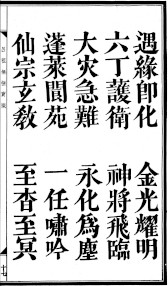 遇緣即化　金光耀明
六丁護衛　神將飛臨
大灾急難　永化爲塵
蓬萊閬苑　一任嘯吟
仙宗玄敎　至杳至冥